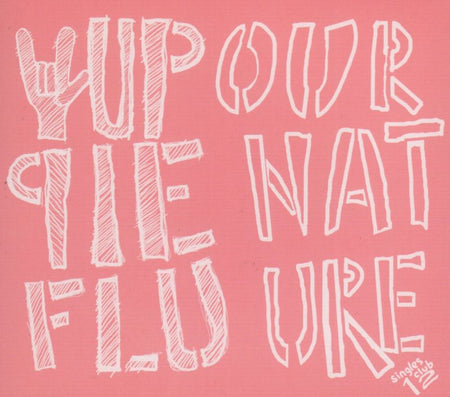 YUP
PIE
FLU
OUR
NAT
URE
singles
club
12